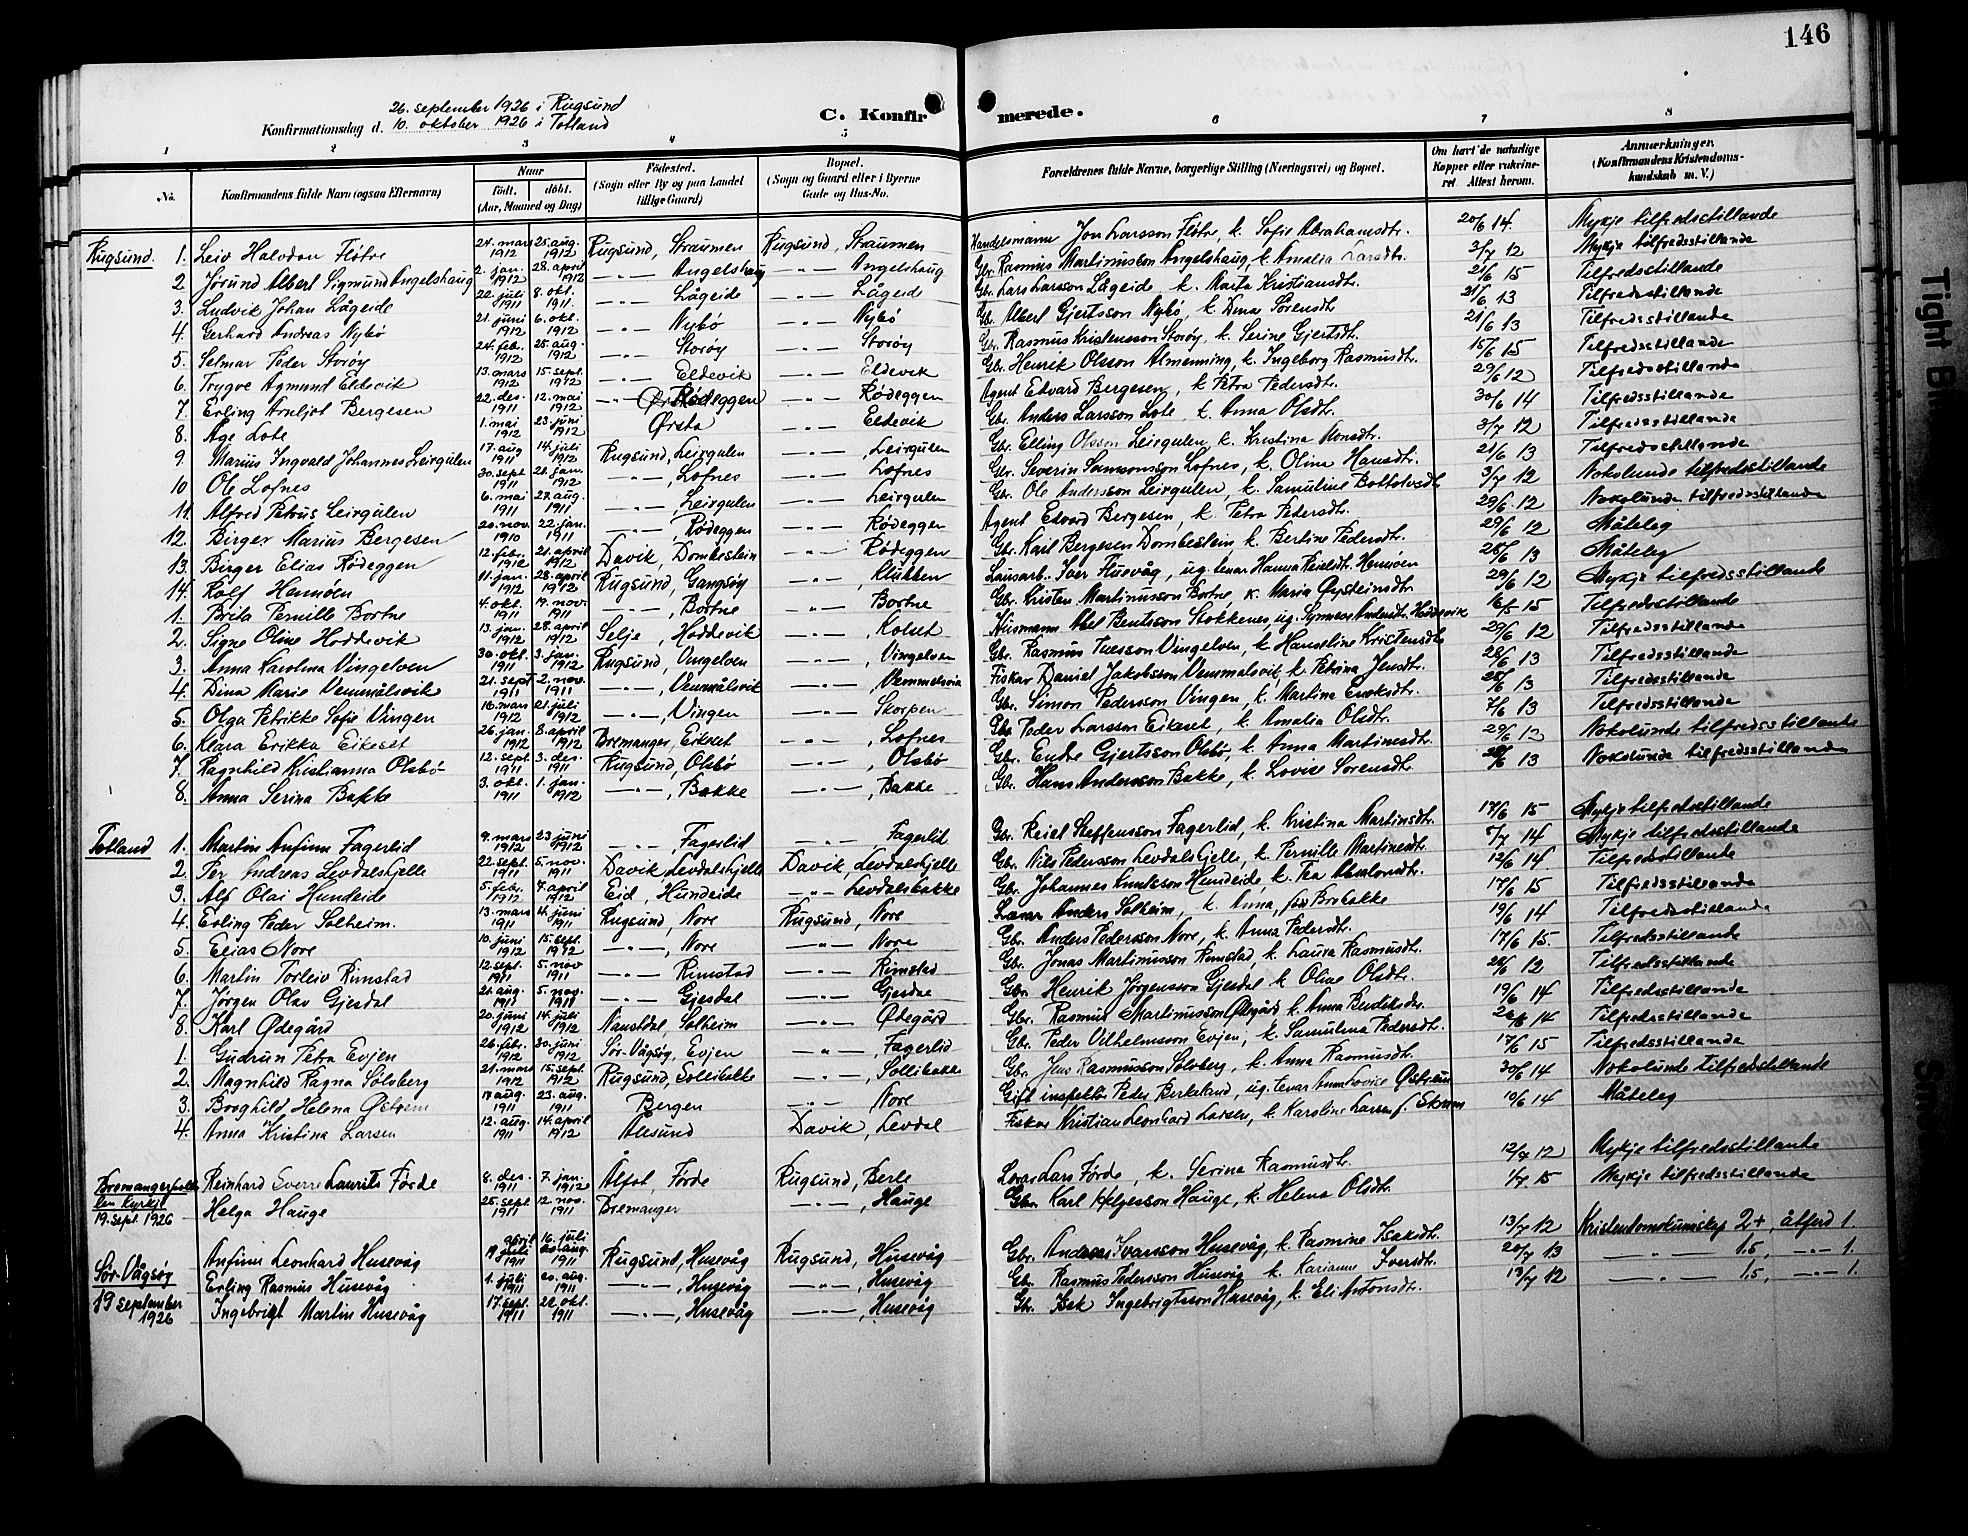 146
26. september 1926 i Rugsund
Konfirmationsdag d. 10. oktober 1926 i Totland
C. Konfirmerede.
1 2 3 4 5 6 7 8
No. Konfirmandens fulde Navn (ogsaa Efternavn) Naar født. døbt. (Aar, Maaned og Dag) Fødested. (Sogn eller By og paa Landet tillige Gaard) Bopæl. (Sogn og Gaard eller i Byerne Gade og Hus-No. Forældrenes fulde Navne, borgerlige Stilling (Næringsvei) og Bopæl. Om havt de naturlige Kopper eller vakcineret. Attest herom. Anmærkninger. (Konfirmandens Kristendomskundskab m. V.)
Rugsund. 1. Leiv Halvdan Fløtre 24. mars 1912 25. aug. 1912 Rugsund, Straumen Rugsund, Straumen Handelsmann Jon Larsson Fløtre, k. Sofie Abrahamsdtr. 20/6 14. Mykje tilfredsstillande
2 Jørund Albert Sigmund Angelshaug 2. jan. 1912 28. april 1912 —"— Angelshaug —"— Angelshaug Gbr. Rasmus Martinusson Angelshaug, k. Amalia Larsdtr. 3/7 12 Mykje tilfredsstillande
3. Ludvik Johan Lågeide 22. juli 1911 8. okt. 1911. —"— Lågeide —"— Lågeid Gbr. Lars Larsson Lågeide k. Marta Kristiansdtr. 21/6 15 Tilfredsstillande
4. Gerhard Andreas Nybø 21. juni 1912 6. okt. 1912 —"— Nybø —"— Nybø Gbr. Albert Gjertsson Nybø, k. Dina Sørensdtr. 21/6 13 Tilfredsstillande
5. Selmar Peder Storøy 24. feb. 1912 25. aug. 1912 —"— Storøy —"— Storøy Gbr. Rasmus Kristensson Storøy, k. Serine Gjertsdtr. 21/6 13 Tilfredsstillande
6. Trygve Agmund Eldevik 13. mars 1912 15. sept. 1912 —"— Eldevik —"— Eldevik Gbr. Henrik Olsson Almenning, k. Ingeborg Rasmusdtr. 15/6 15 Tilfredsstillande
7. Erling Arnljot Bergesen 22. des. 1911 12. mai 1912 —"— Rødeggen —"— Rødeggen Agent Edvard Bergesen, k. Petra Pedersdtr. 29/6 12 Tilfredsstillande
8. Åge Lote 1. mai 1912 23. juni 1912 Ørsta —"— Eldevik Gbr. Anders Larsson Lote k. Anna Olsdtr. 30/6 14 Tilfredsstillande
9. Marius Ingvald Johannes Leirgulen 17. aug 1911 14. juli 1912 Rugsund, Leirgulen —"—, Leirgulen Gbr. Elling Olsson Leirgulen, k. Kristina Monsdtr. 3/7 12 Tilfredsstillande
10 Ole Lofnes 30. sept. 1911 21. jan. 1912 —"—, Lofnes —"— Lofnes Gbr. Severin Samsonsson Lofnes, k. Olina Hansdtr. 21/6 13 Tilfredsstillande
11. Alfred Petrus Leirgulen 6. mai 1911 27. aug. 1911 —"—, Leirgulen —"— Leirgulen Gbr. Ole Andersson Leirgulen, k. Samuline Bottolvsdtr 3/7 12 Nokolunde tilfredsstillande
12. Birger Marius Bergesen 20. nov. 1910 22. jan. 1911 —"—, Rødeggen —"— Rødeggen Agent Edvard Bergesen, k. Petra Pedersdtr. 29/6 12 Nokolunde tilfredsstillande
13. Birger Elias Rødeggen 12. febr. 1912 21. april 1912 Davik, Dombestein —"— Rødeggen Gbr. Karl Bergesen Dombestein k. Bertine Pedersdtr. 29/6 12 Måteleg
14. Rolf Hennøen 11. jan. 1912 28. april 1912 Rugsund, Gangsøy —"—, Klubben Lausarb. Iver Husevåg, ug. tenar Hanna Reieldtr. Hennøen 28/6 13 Måteleg
1. Brita Pernille Bortne 4. okt. 1911 19. nov. 1911 —"—, Bortne —"— Bortne Gbr. Kristen Martinusson Bortne k. Maria Øysteinsdtr 29/6 12 Mykje tilfredsstillande
2. Signe Oline Hoddevik 13. jan. 1912 28. april 1912 Selje, Hoddevik —"—, Kolset Husmann Abel Bentsson Stokkenes, ug. Synneve Andersdtr. Hoddevik 16/5 15 Tilfredsstillande
3. Anna Karolina Vingelven 30. okt. 1911 3. jan. 1912 Rugsund, Vingelven —"—, Vingelven Gbr. Rasmus Iversson Vingelven, k. Hanseline Kristensdtr 29/6 12 Tilfredsstillande
4. Dina Marie Vemmålsvik 21. sept 1911 2. nov. 1911 —"—, Vemmålsvik —"—, Vemmelsvik Fiskar Daniel Jakobsson Vemmelsvik k. Petrina Jensdtr. 28/6 13 Tilfredsstillande
5. Olga Petrikke Sofie Vingen 16. mars 1912 21. juli 1912 —"—, Vingen —"— Skorpen Gbr. Simon Pedersson Vingen, k. Martina Eneksdtr. 28/6 13 Tilfredsstillande
6. Klara Erikka Eikeset 26. jan. 1912 8. april 1912 Bremanger, Eikeset —"—, Lofnes Gbr. Peder Larsson Eikeset, k. Amalia Olsdtr. 7/6 13 Tilfredsstillande
7. Ragnhild Kristianna Olsbø 12. sept. 1911 3. des. 1911 Rugsund, Olsbø —"—, Olsbø Gbr. Endre Gjertsson Olsbø, k. Anna Martinesdtr. 29/6 12 Nokolunde tilfredsstillande
8. Anna Serina Bakke 3. okt. 1911 1. jan. 1912 —"—, Bakke —"—, Bakke Gbr. Hans Andersson Bakke, k. Lovise Sørensdtr. 28/6 13 Nokolunde tilfredsstillande
Totland 1. Martin Anfinn Fagerlid 9. mars 1912 23 juni 1912 —"—, Fagerlid —"— Fagerlid Gbr. Reiel Steffensson Fagerlid, k. Kristina Martinsdtr. 17/6 15 Mykje tilfredsstillande
2. Per Andreas Levdalshjelle 22. sept. 1911 5. nov. 1911 Davik, Levdalshjelle Davik, Levdalshjelle Gbr. Nils Pedersson Levdalshjelle, k. Pernille Martinesdtr. 5/7 14 Mykje tilfredsstillande
3. Alf Olai Hundeide 5. febr. 1912 7. april 1912 Eid, Hundeide —"— Levdalsbakke Gbr. Johannes Knutsson Hundeide, k. Tea Absalonsdtr. 12/6 14 Tilfredsstillande
4. Erling Peder Solheim. 13. mars 1911 4. juni 1911 Rugsund, Nore Rugsund, Nore Lærar Anders Solheim, k. Anna, født Brobakke 17/6 15 Tilfredsstillande
5. Elias Nore 10. juni 1912 15. sept. 1912 —"—, Nore —"— Nore Gbr. Anders Pedersson Nore, k. Anna Pedersdtr. 19/6 14 Tilfredsstillande
6. Martin Torleiv Rimstad 12. sept. 1911 5. nov 1911 —"— Rimstad —"— Rimstad Gbr. Jonas Martinusson Rimstad, k. Laura Rasmusdtr. 17/6 15. Tilfredsstillande
7. Jørgen Olav Gjesdal 21. aug. 1911 5. nov. 1911 —"— Gjesdal —"— Gjesdal Gbr. Henrik Jørgensson Gjesdal k. Oline Olsdtr. 28/6 12 Tilfredsstillande
8. Karl Ødegård 20. juni 1912 14. juli 1912 Naustdal, Solheim —"— Ødegård Gbr. Rasmus Martinusson Ødegård k. Anna Bendiksdtr. 19/6 14 Tilfredsstillande
1. Gudrun Petra Evjen 26. febr. 1912 30. juni 1912 Sør-Vågsøy, Evjen —"—, Fagerlid Gbr. Peder Vilhelmsson Evjen, k. Samulina Pedersdtr. 26/6 14 Tilfredsstillande
2. Magnhild Ragna Solsberg 21. mars 1912 15. sept. 1912 Rugsund, Sollibakke —"—, Sollibakke Gbr. Jens Rasmusson Solsberg, k. Anna Rasmusdtr. 17/6 15 Tilfredsstillande
3. Borghild Helena Østrem 19 aug. 1911 23. aug. 1911 Bergen —"— Nore Gift inspektør Peder Birkeland, ug. tenar Anna Lovise Østrem 30/6 14 Nokolunde tilfredsstillande
4. Anna Kristina Larsen 12. aug. 1911 14. april 1912 Ålesund Davik, Levdal Fiskar Kristian Leonhard Larsen, k. Karoline Larsen f. 19/6 14 Måteleg
Bremangerpollen kyrkje 19. sept. 1926 Reinhard Sverre Laurits Førde 8. des. 1911 7. jan. 1912 Ålfot, Førde Rugsund, Berle Lars Førde, k. Serina Rasmusdtr. 12/7 12 Mykje tilfredsstillande
Helga Hauge 25. sept. 1911 12. nov. 1911 Bremanger —"—, Hauge Gbr. Karl Helgesson Hauge, k. Helena Olsdtr. 1/7 15 Mykje tilfredsstillande
Sør-Vågsøy 19 september 1926 Anfinn Leonhard Husevåg april 1911 16. juli 1911 Rugsund, Husevåg Rugsund, Husevåg Gbr. Anders Ivarsson Husevåg, k. Rasmine Isaksdtr. 13/7 12 Kristendomskunnskap 2+, åtferd 1.
Erling Rasmus Husevåg 1. juli 1911 20. aug. 1911 —"—, Husevåg —"—, Husevåg Gbr. Rasmus Pedersson Husevåg k. Karianne Iversdtr. 20/7 13 —"— 1,5, —"— 1.
Ingebrigt Martin Husevåg 17. sept. 1911 22. okt. 1911 —"—, Husevåg —"—, Husevåg Gbr. Isak Ingebrigtsson Husevåg, k. Eli Antonsdtr. 13/7 12 —"— 1,5, —"— 1.
Tight Bi